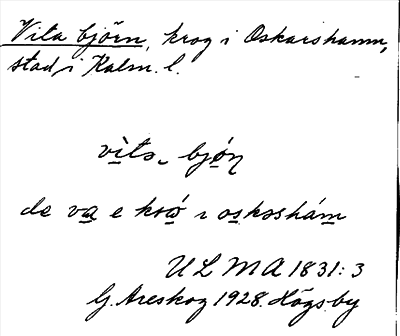 Vita björn, krog i Oskarshamn,
stad i Kalm. l.
vìtə, bjón
de va e kroó ı oskəshám
ULMA 1831:3
G. Areskog 1928. Högsby